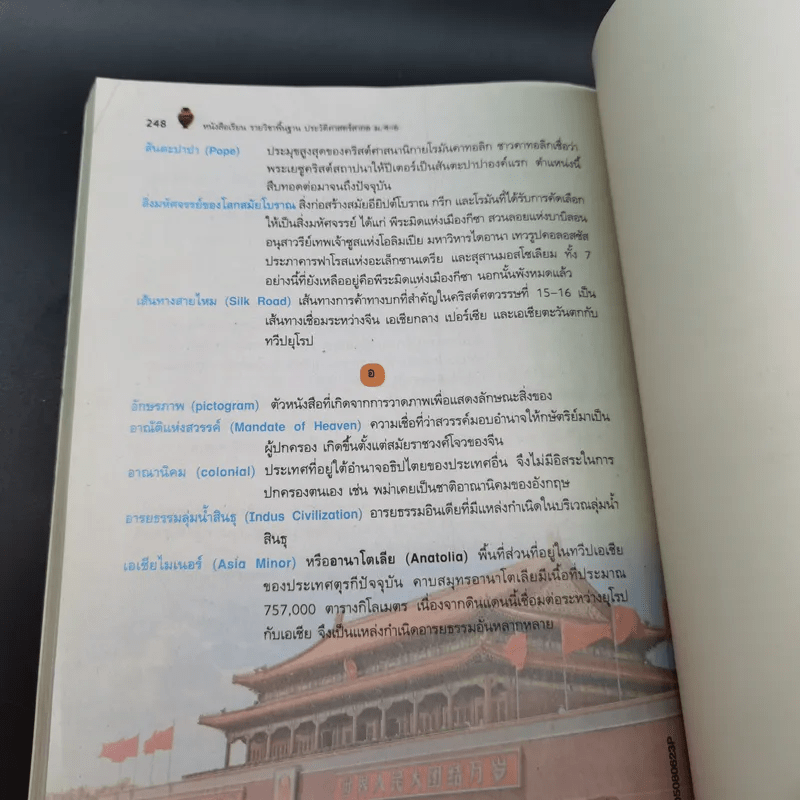 248
หนังสือเรียน รายวิชาพื้นฐาน ประวัติศาสตร์สากล ม.๔-๖
สันตะปาปา (Pope) ประมุขสูงสุดของคริสต์ศาสนานิกายโรมันคาทอลิก ชาวคาทอลิกเชื่อว่า
พระเยซูคริสต์สถาปนาให้ปีเตอร์เป็นสันตะปาปาองค์แรก ตำแหน่งนี้
สืบทอดต่อมาจนถึงปัจจุบัน
สิ่งมหัศจรรย์ของโลกสมัยโบราณ สิ่งก่อสร้างสมัยอียิปต์โบราณ กรีก และโรมันที่ได้รับการคัดเลือก
ให้เป็นสิ่งมหัศจรรย์ ได้แก่ พีระมิดแห่งเมืองกีซา สวนลอยแห่งบาบิลอน
อนุสาวรีย์เทพเจ้าซูสแห่งโอลิมเปีย มหาวิหารไดอานา เทวรูปคอลอสซัส
ประภาคารฟาโรสแห่งอะเล็กซานเดรีย และสุสานมอสโซเลียม ทั้ง 7
อย่างนี้ที่ยังเหลืออยู่คือพีระมิดแห่งเมืองกีซา นอกนั้นพังหมดแล้ว
เส้นทางสายไหม (Silk Road) เส้นทางการค้าทางบกที่สำคัญในคริสต์ศตวรรษที่ 15-16 เป็น
เส้นทางเชื่อมระหว่างจีน เอเชียกลาง เปอร์เซีย และเอเชียตะวันตกกับ
ทวีปยุโรป
อ
อักษรภาพ (pictogram) ตัวหนังสือที่เกิดจากการวาดภาพเพื่อแสดงลักษณะสิ่งของ
อาณัติแห่งสวรรค์ (Mandate of Heaven) ความเชื่อที่ว่าสวรรค์มอบอำนาจให้กษัตริย์มาเป็น
ผู้ปกครอง เกิดขึ้นตั้งแต่สมัยราชวงศ์โจวของจีน
อาณานิคม (colonial) ประเทศที่อยู่ใต้อำนาจอธิปไตยของประเทศอื่น จึงไม่มีอิสระในการ
ปกครองตนเอง เช่น พม่าเคยเป็นชาติอาณานิคมของอังกฤษ
อารยธรรมลุ่มน้ำสินธุ (Indus Civilization) อารยธรรมอินเดียที่มีแหล่งกำเนิดในบริเวณลุ่มน้ำ
สินธุ
เอเชียไมเนอร์ (Asia Minor) หรืออานาโตเลีย (Anatolia) พื้นที่ส่วนที่อยู่ในทวีปเอเชีย
ของประเทศตุรกีปัจจุบัน คาบสมุทรอานาโตเลียมีเนื้อที่ประมาณ
757,000 ตารางกิโลเมตร เนื่องจากดินแดนนี้เชื่อมต่อระหว่างยุโรป
กับเอเชีย จึงเป็นแหล่งกำเนิดอารยธรรมอันหลากหลาย
人民大团结万岁
5080623P